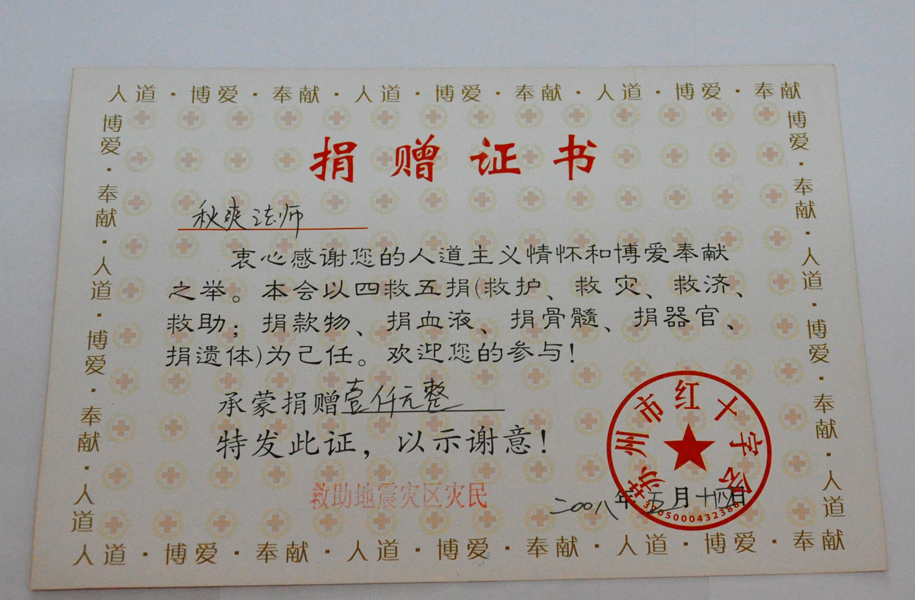 人道·博爱·奉献·人道·博爱·奉献·人道·博爱·奉献
博爱·奉献·人道·博爱·奉献·人道
博爱·奉献·人道·博爱·奉献·人道
捐赠证书
秋爽法师
衷心感谢您的人道主义情怀和博爱奉献
之举。本会以四救五捐(救护、救灾、救济、
救助;捐款物、捐血液、捐骨髓、捐器官、
捐遗体)为己任。欢迎您的参与!
承蒙捐赠壹仟元整
特发此证，以示谢意!
苏州市红十字会
救助地震灾区灾民
二00八年五月十四日
人道·博爱·奉献·人道·博爱·奉献·人道·博爱·奉献